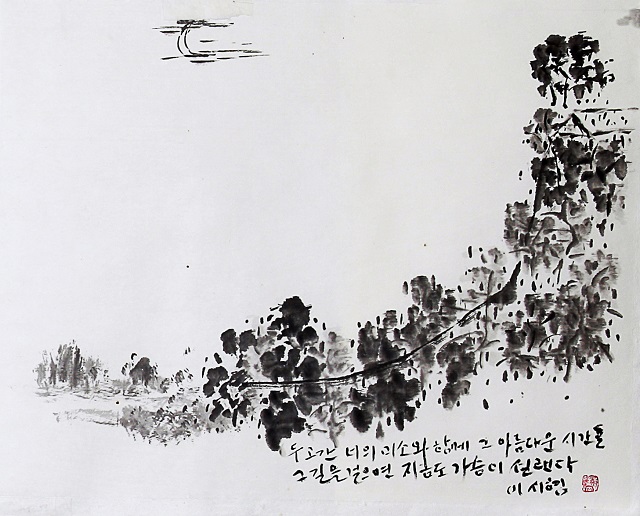 두고간 너의 미소와 함께 그 아름다운 시간들
그 길을 걸으면 지금도 가슴이 설랜다
이 시형